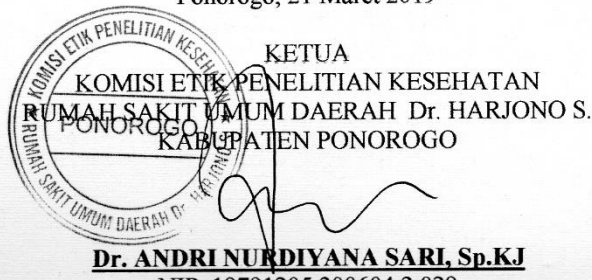 Ponorogo, 21 Maret 2019
KETUA
KOMISI ETIK PENELITIAN KESEHATAN
RUMAH SAKIT UMUM DAERAH Dr. HARJONO S.
KABUPATEN PONOROGO
KOMISI ETIK PENELITIAN KESEHATAN
PONOROGO
RUMAH SAKIT UMUM DAERAH Dr. HARJONO
Dr. ANDRI NURDIYANA SARI, Sp.KJ